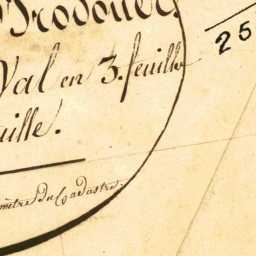 Brodouer.
Val en 3. feuille
uille.
mètre du Cadastre.
25